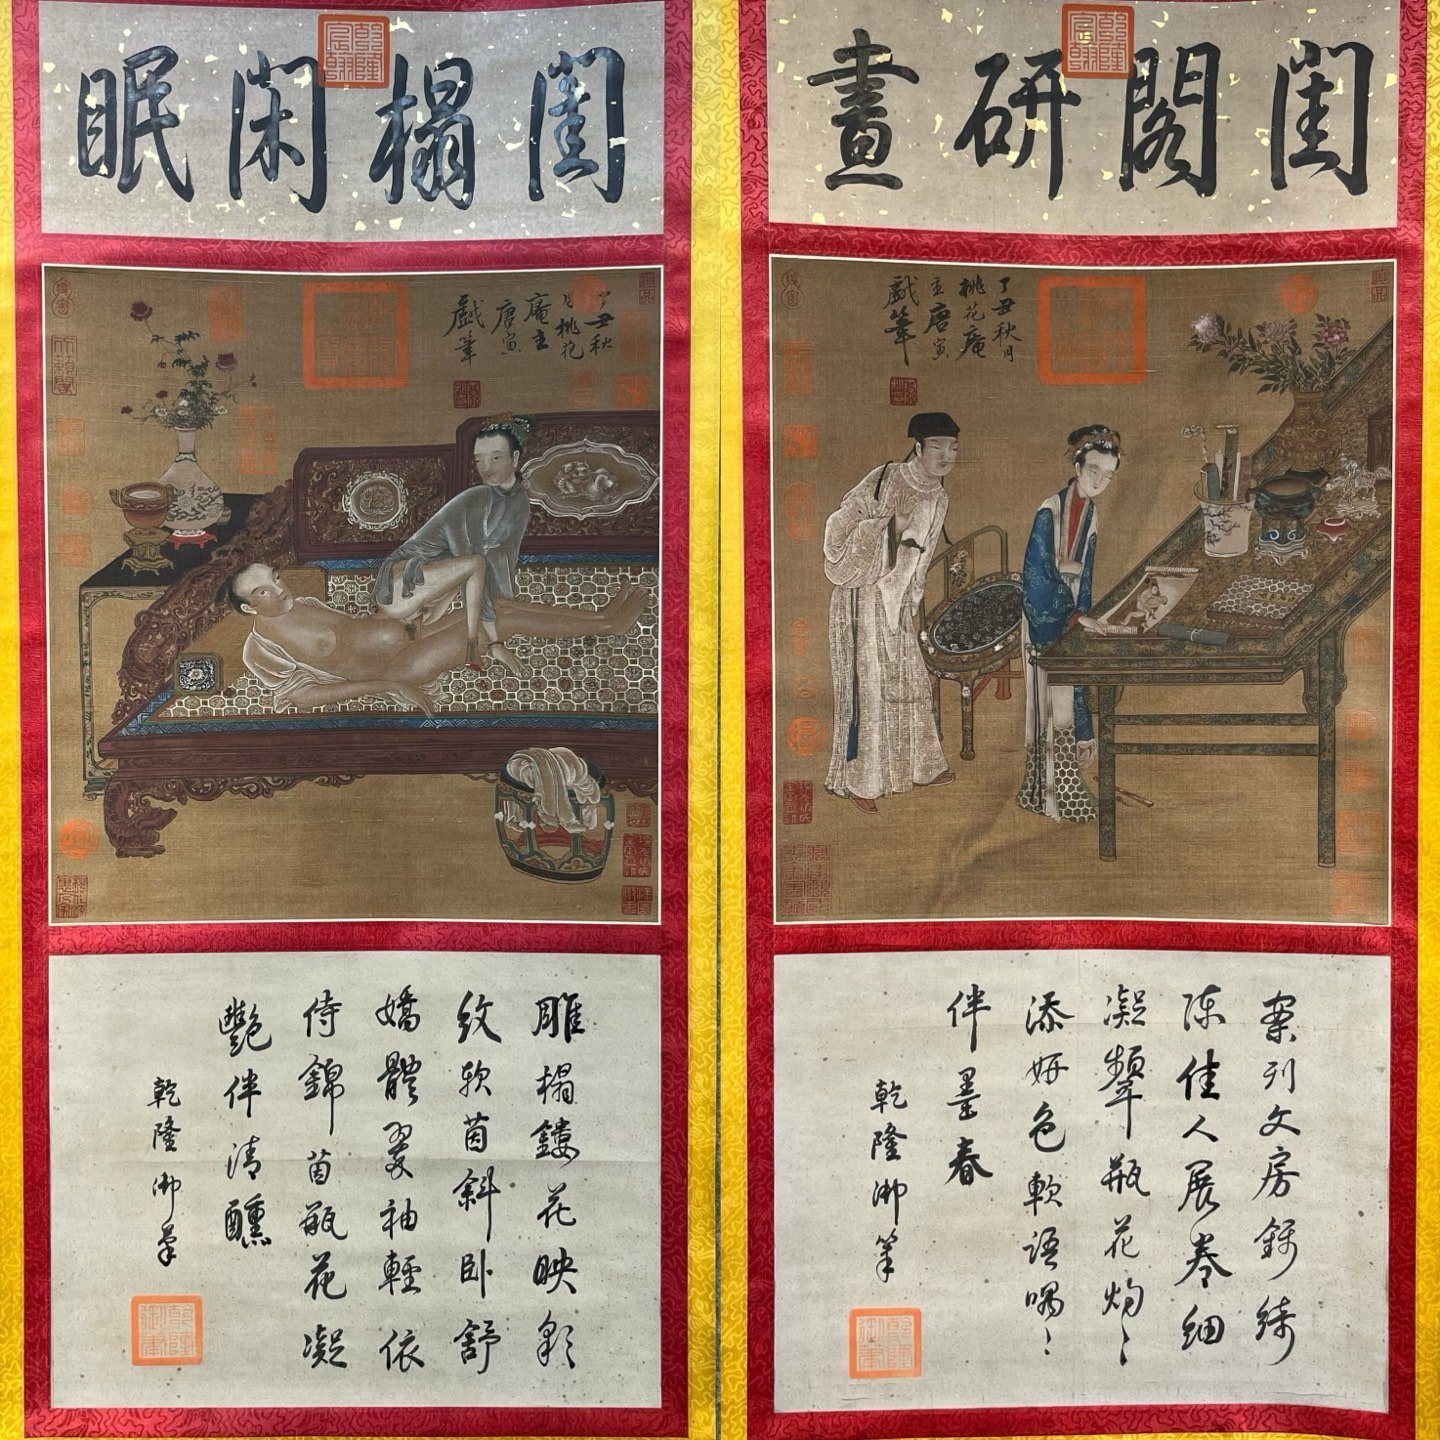 閨閣研畫
乾隆宸翰
丁丑秋月
桃花庵
主唐寅
戲筆
案列文房錦綺
陳佳人展卷細
凝顰瓶花灼〻
添妍色軟語喁〻
伴墨春
乾隆御筆
乾隆御筆
閨榻閑眠
乾隆宸翰
丁丑秋
月桃花
庵主
唐寅
戲筆
雕榻鏤花映彩
紋軟茵斜卧舒
嬌體翠袖輕依
侍錦茵瓶花凝
艷伴清醺
乾隆御筆
乾隆御筆